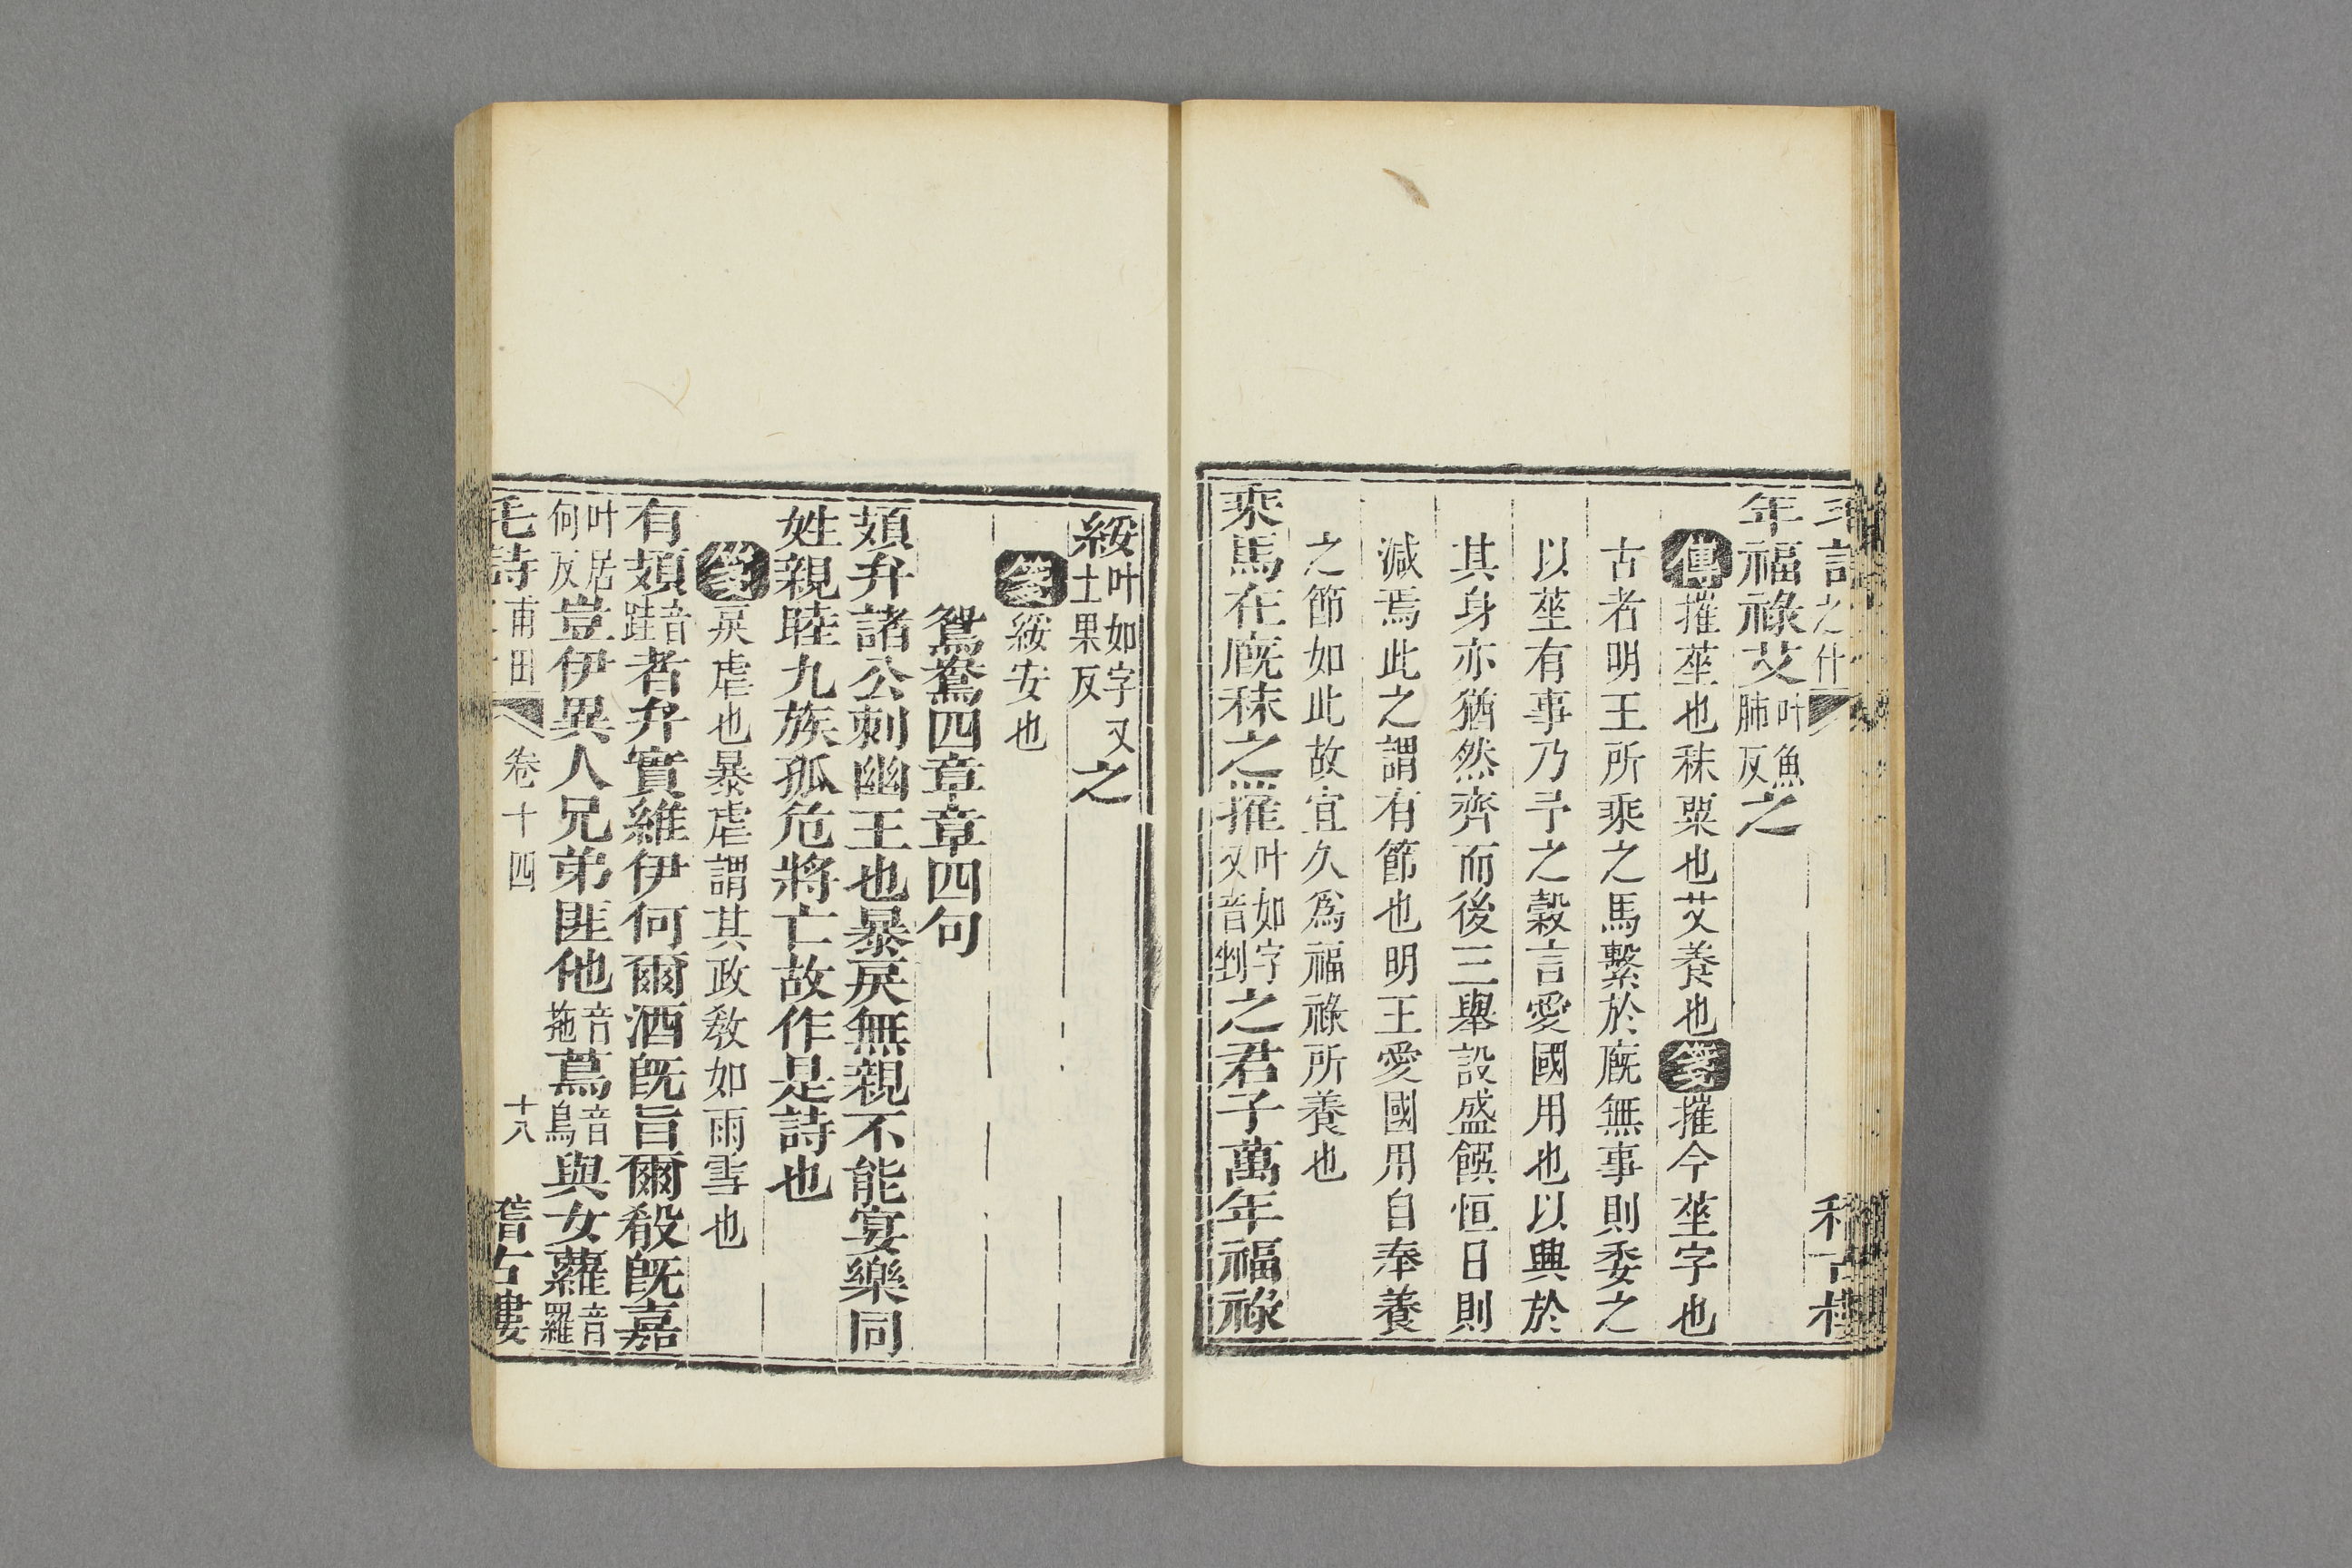 年福祿艾叶魚肺反之
傳摧莝也秣粟也艾養也箋摧今莝字也
古者明王所乘之馬繫於廐無事則委之
以莝有事乃予之穀言愛國用也以興於
其身亦猶然齊而後三舉設盛饌恒日則
減焉此之謂有節也明王愛國用自奉養
之節如此故宜久為福祿所養也
乘馬在廐秣之摧叶如字又音剉之君子萬年福祿
綏叶如字又土果反之
箋綏安也
鴛鴦四章章四句
頍弁諸公刺幽王也暴戾無親不能宴樂同
姓親睦九族孤危將亡故作是詩也
箋戾虐也暴虐謂其政教如雨雪也
有頍音跬者弁實維伊何爾酒旣旨爾殽旣嘉
叶居何反豈伊異人兄弟匪他音拖蔦音鳥與女蘿音羅
毛詩 甫田 卷十四 十八 稽古樓